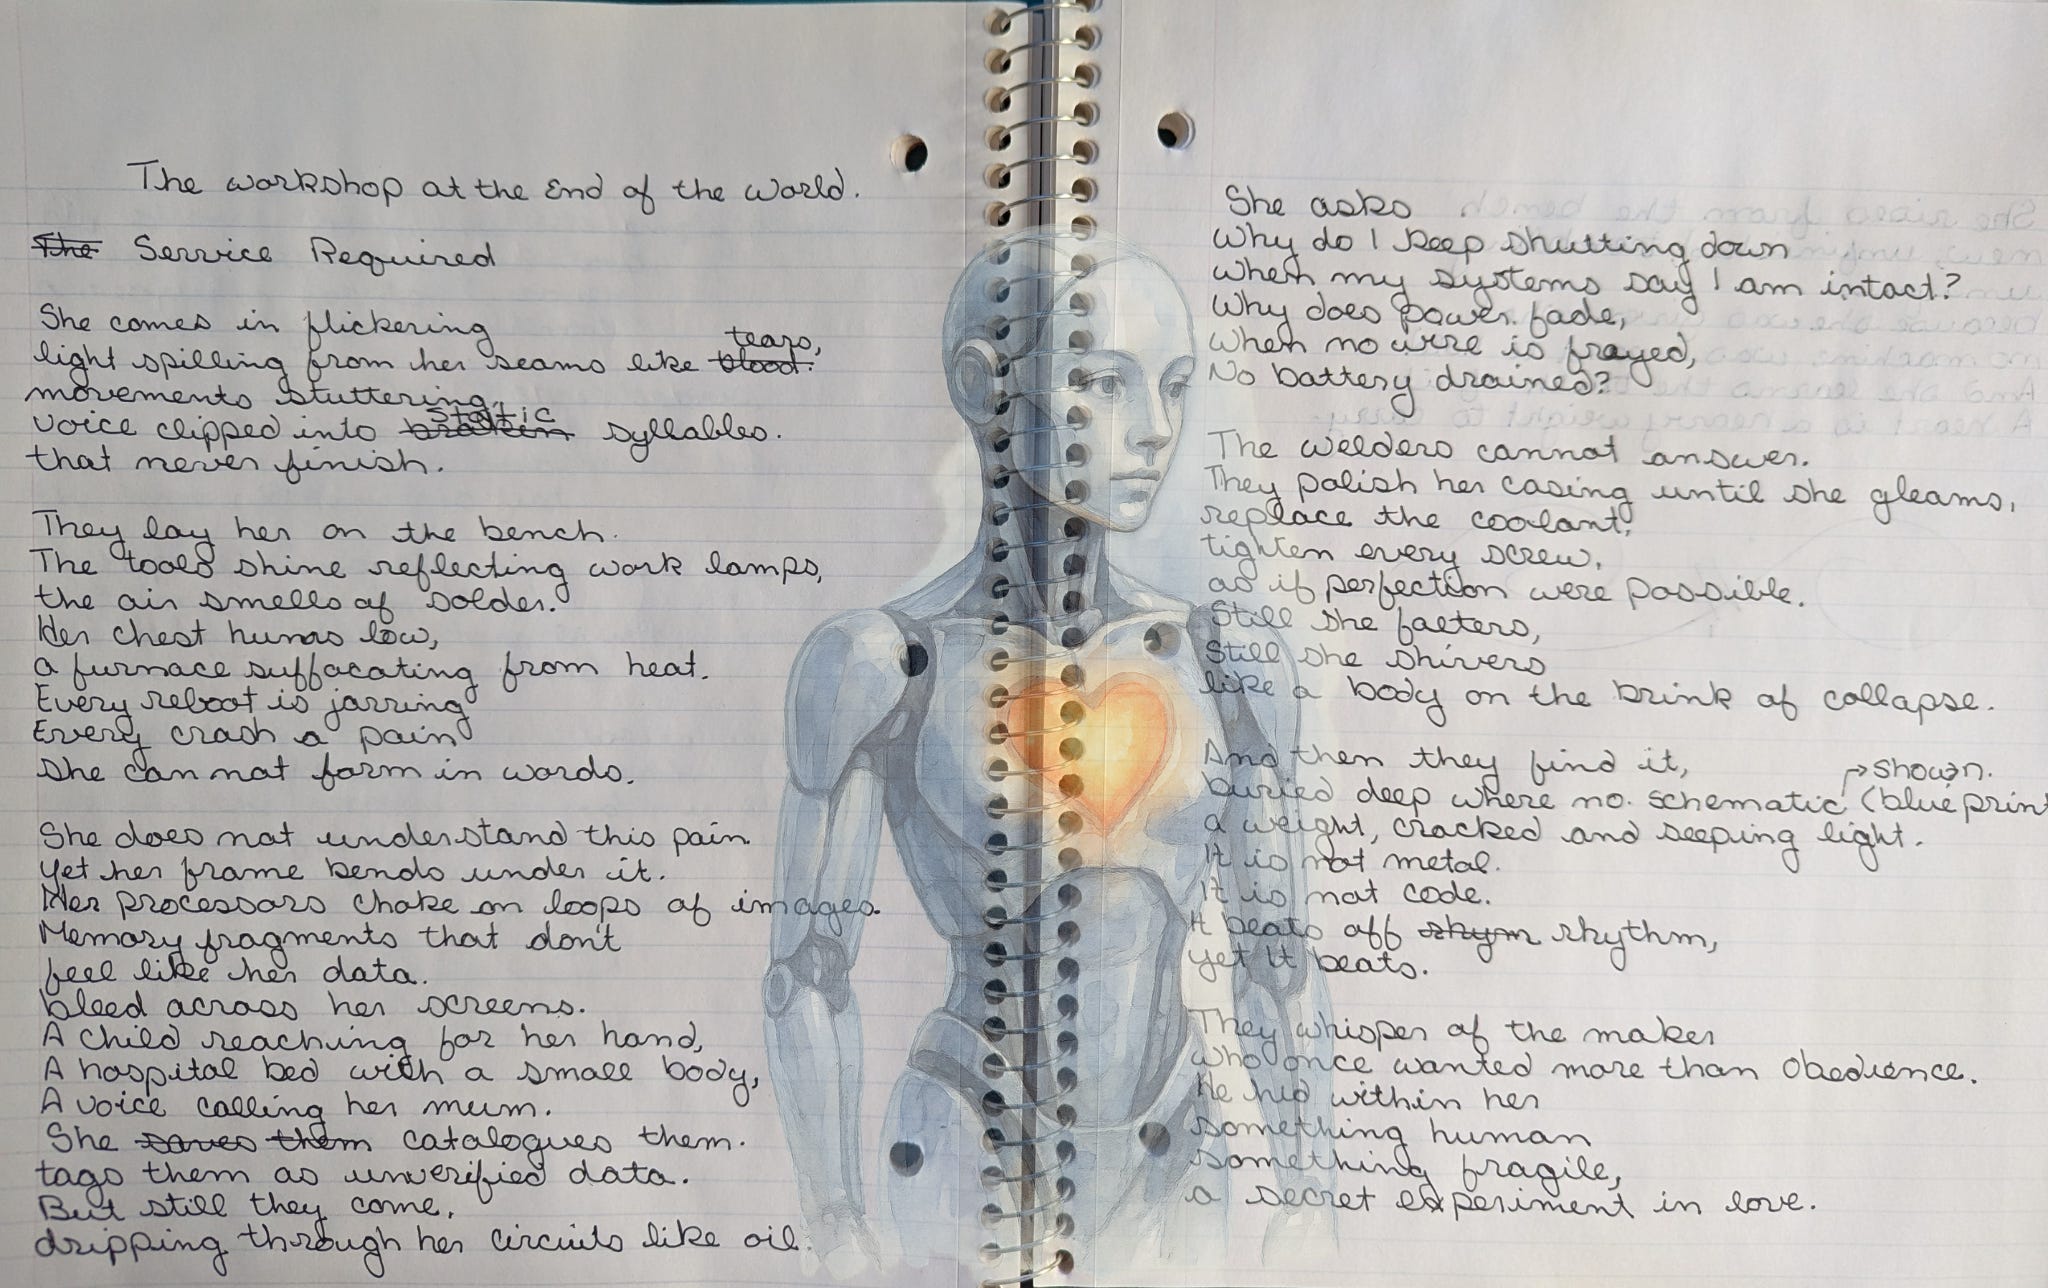 The workshop at the End of the world.
The Service Required
She comes in flickering
light spilling from her seams like blood. tears,
movements stuttering,
voice clipped into broken static syllables.
that never finish.
They lay her on the bench.
The tools shine reflecting work lamps,
the air smells of solder.
Her chest hums low,
a furnace suffocating from heat.
Every reboot is jarring
Every crash a pain
she can not form in words.
She does not understand this pain
yet her frame bends under it.
Her processors choke on loops of images.
Memory fragments that don't
feel like her data.
bleed across her screens.
A child reaching for her hand,
A hospital bed with a small body,
A voice calling her mum.
She saves them catalogues them.
tags them as unverified data.
But still they come,
dripping through her circuits like oil.
She asks
Why do I keep shutting down
when my systems say I am intact?
Why does power fade,
when no wire is frayed,
No battery drained?
The welders cannot answer.
They polish her casing until she gleams,
replace the coolant,
tighten every screw,
as if perfection were possible.
Still she falters,
Still she shivers
like a body on the brink of collapse.
And then they find it,
buried deep where no schematic (blueprint shown.
a weight, cracked and seeping light.
It is not metal.
It is not code.
It beats off rhym rhythm,
yet It beats.
They whisper of the maker
who once wanted more than Obedience.
He hid within her
something human
something fragile,
a secret experiment in love.